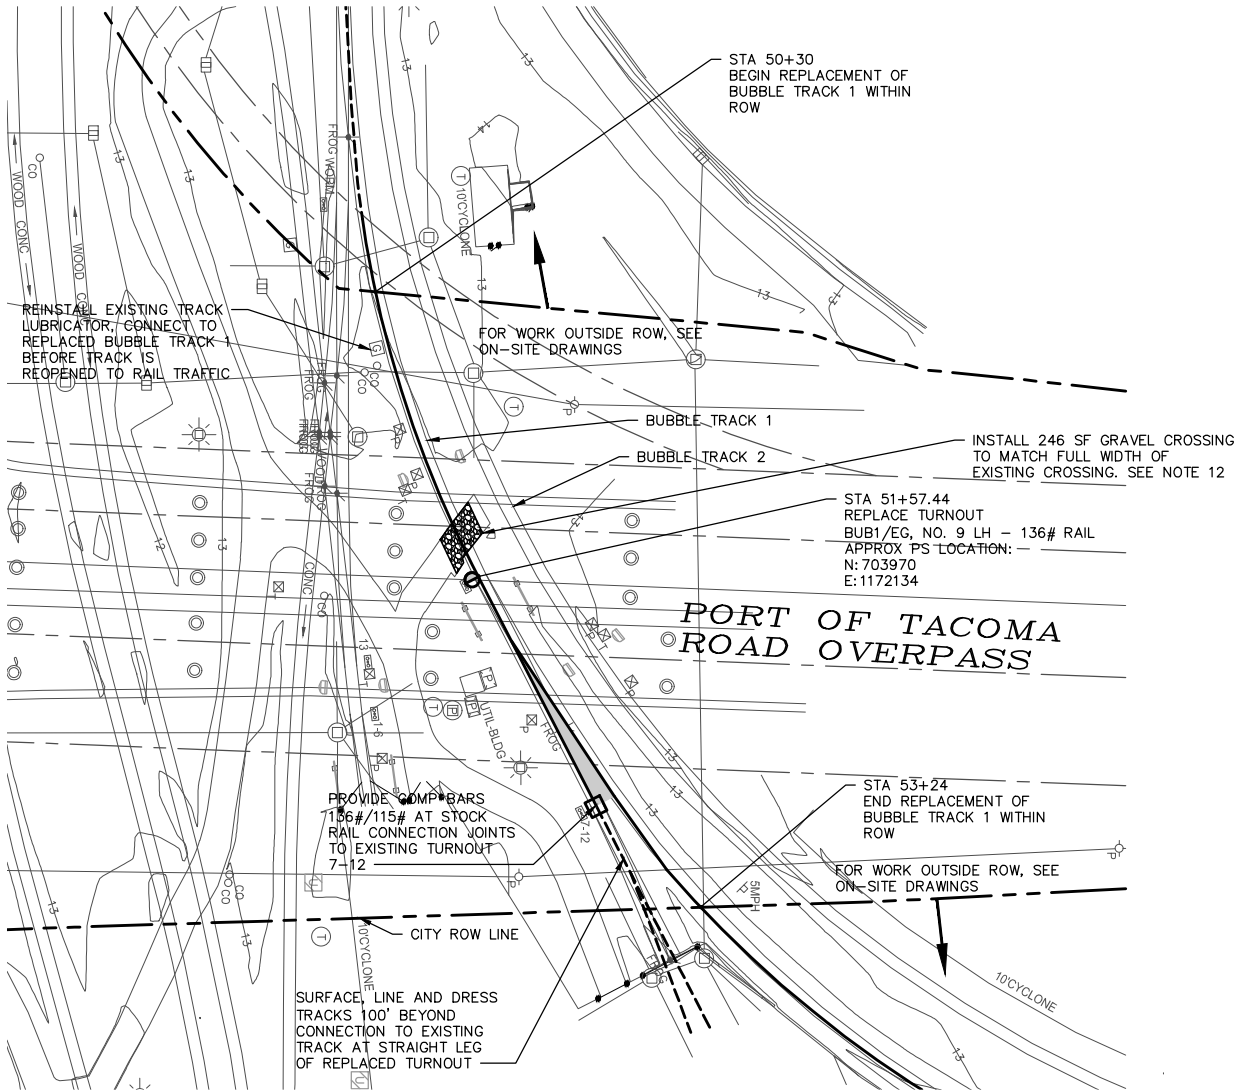 STA 50+30
BEGIN REPLACEMENT OF
BUBBLE TRACK 1 WITHIN
ROW
13
13
13
13
14
FROG
WORM
T
10'CYCLONE
CO
WOOD
CONC
WOOD
13
13
13
REINSTALL EXISTING TRACK
LUBRICATOR, CONNECT TO
REPLACED BUBBLE TRACK 1
BEFORE TRACK IS
REOPENED TO RAIL TRAFFIC
FOR WORK OUTSIDE ROW, SEE
ON-SITE DRAWINGS
G
CO
CO
FROG
FROG
T
P
BUBBLE TRACK 1
BUBBLE TRACK 2
INSTALL 246 SF GRAVEL CROSSING
TO MATCH FULL WIDTH OF
EXISTING CROSSING. SEE NOTE 12
FROG
STA 51+57.44
REPLACE TURNOUT
BUB1/EG, NO. 9 LH - 136# RAIL
APPROX PS LOCATION:
N: 703970
E: 1172134
12
13
13
CONC
CO
PORT OF TACOMA
ROAD OVERPASS
13
T
P
T
P
UTIL-BLDG
FROG
1-6
P
P
13
13
13
PROVIDE COMP BARS
136#/115# AT STOCK
RAIL CONNECTION JOINTS
TO EXISTING TURNOUT
7-12
7-12
STA 53+24
END REPLACEMENT OF
BUBBLE TRACK 1 WITHIN
ROW
P
P
5MPH
P
FOR WORK OUTSIDE ROW, SEE
ON-SITE DRAWINGS
CO
CO
13
13
T
CITY ROW LINE
10'CYCLONE
FROG
10'CYCLONE
SURFACE, LINE AND DRESS
TRACKS 100' BEYOND
CONNECTION TO EXISTING
TRACK AT STRAIGHT LEG
OF REPLACED TURNOUT
13
13